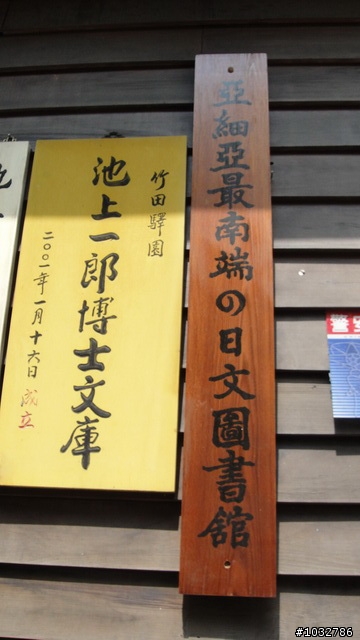 亞細亞最南端の日文圖書館
竹田驛園
池上一郎博士文庫
二〇〇一年一月十六日成立
#1032786